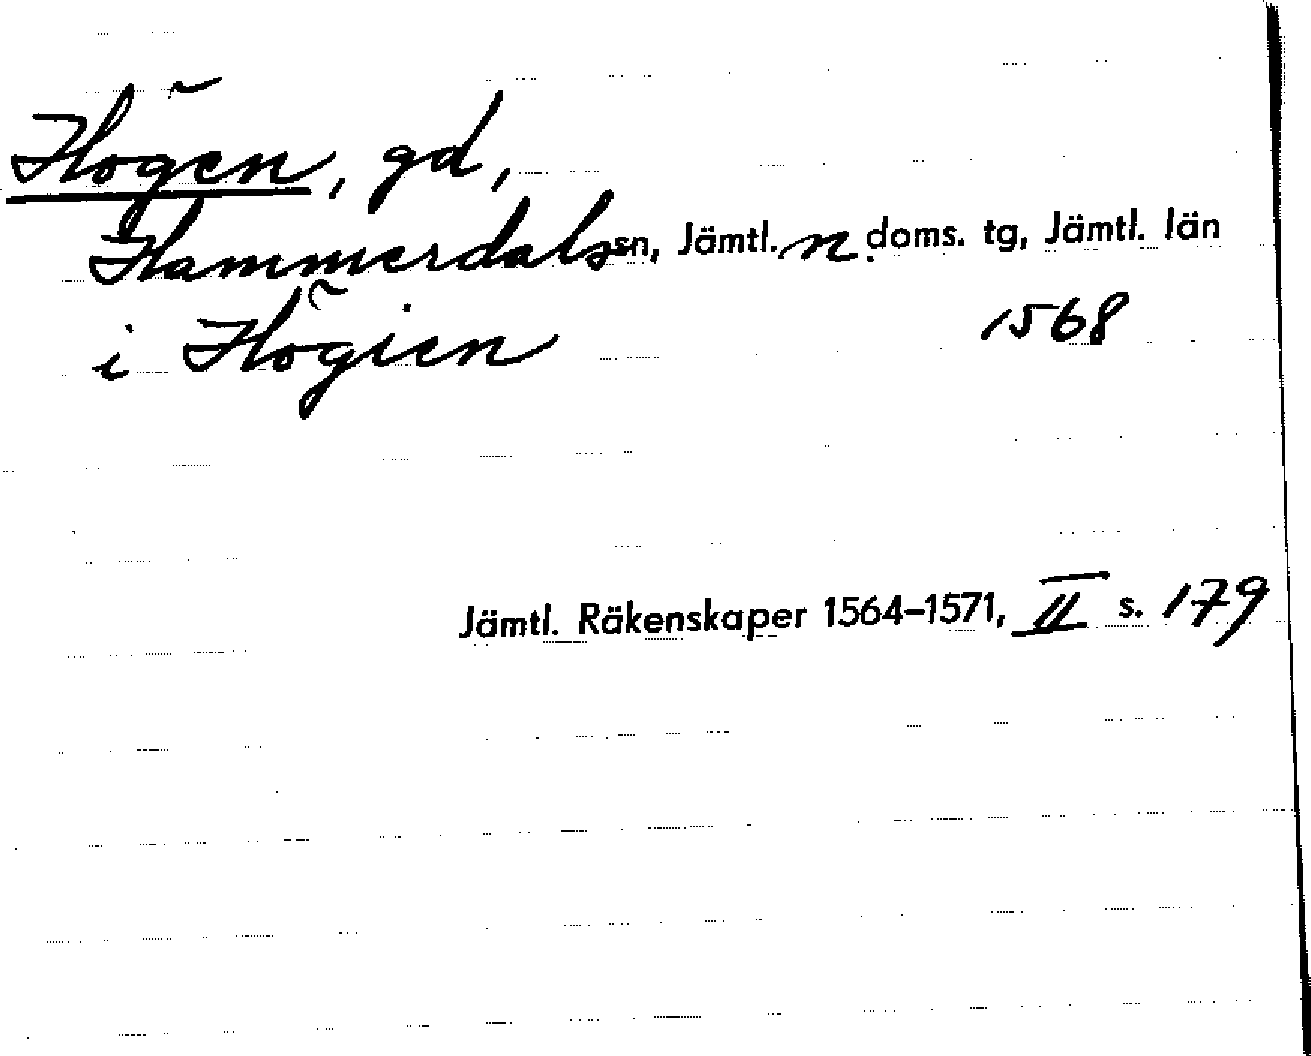 Högen, gd,
Hammerdals sn, Jämtl. n. doms. tg, Jämtl. län
i Högien 1568
Jämtl. Räkenskaper 1564–1571, II s. 179